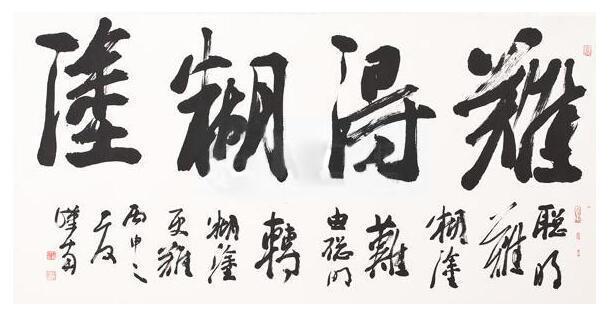 難得糊塗
聰明
難
糊塗
難
由聰明
轉
糊塗
更難
丙申之
夏